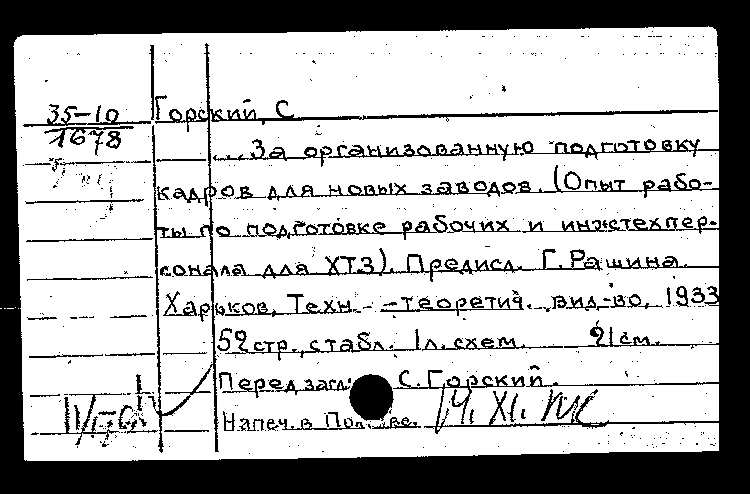 35-10
1678
Горский, С
... За организованную подготовку
кадров для новых заводов. (Опыт рабо-
ты по подготовке рабочих и инжтехпер-
сонала для ХТЗ). Предисл. Г. Рашина.
Харьков, Техн.-теоретич. вид-во, 1933
52 стр., с табл. 1 л. схем. 21 см.
Перед загл: С. Горский.
Напеч. в